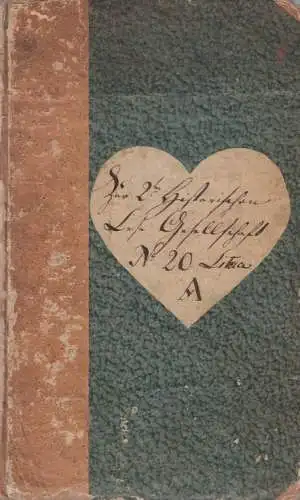 Zur 2ⁿ Historischen
Lese Gesellschaft
Nº 20 Littra
A